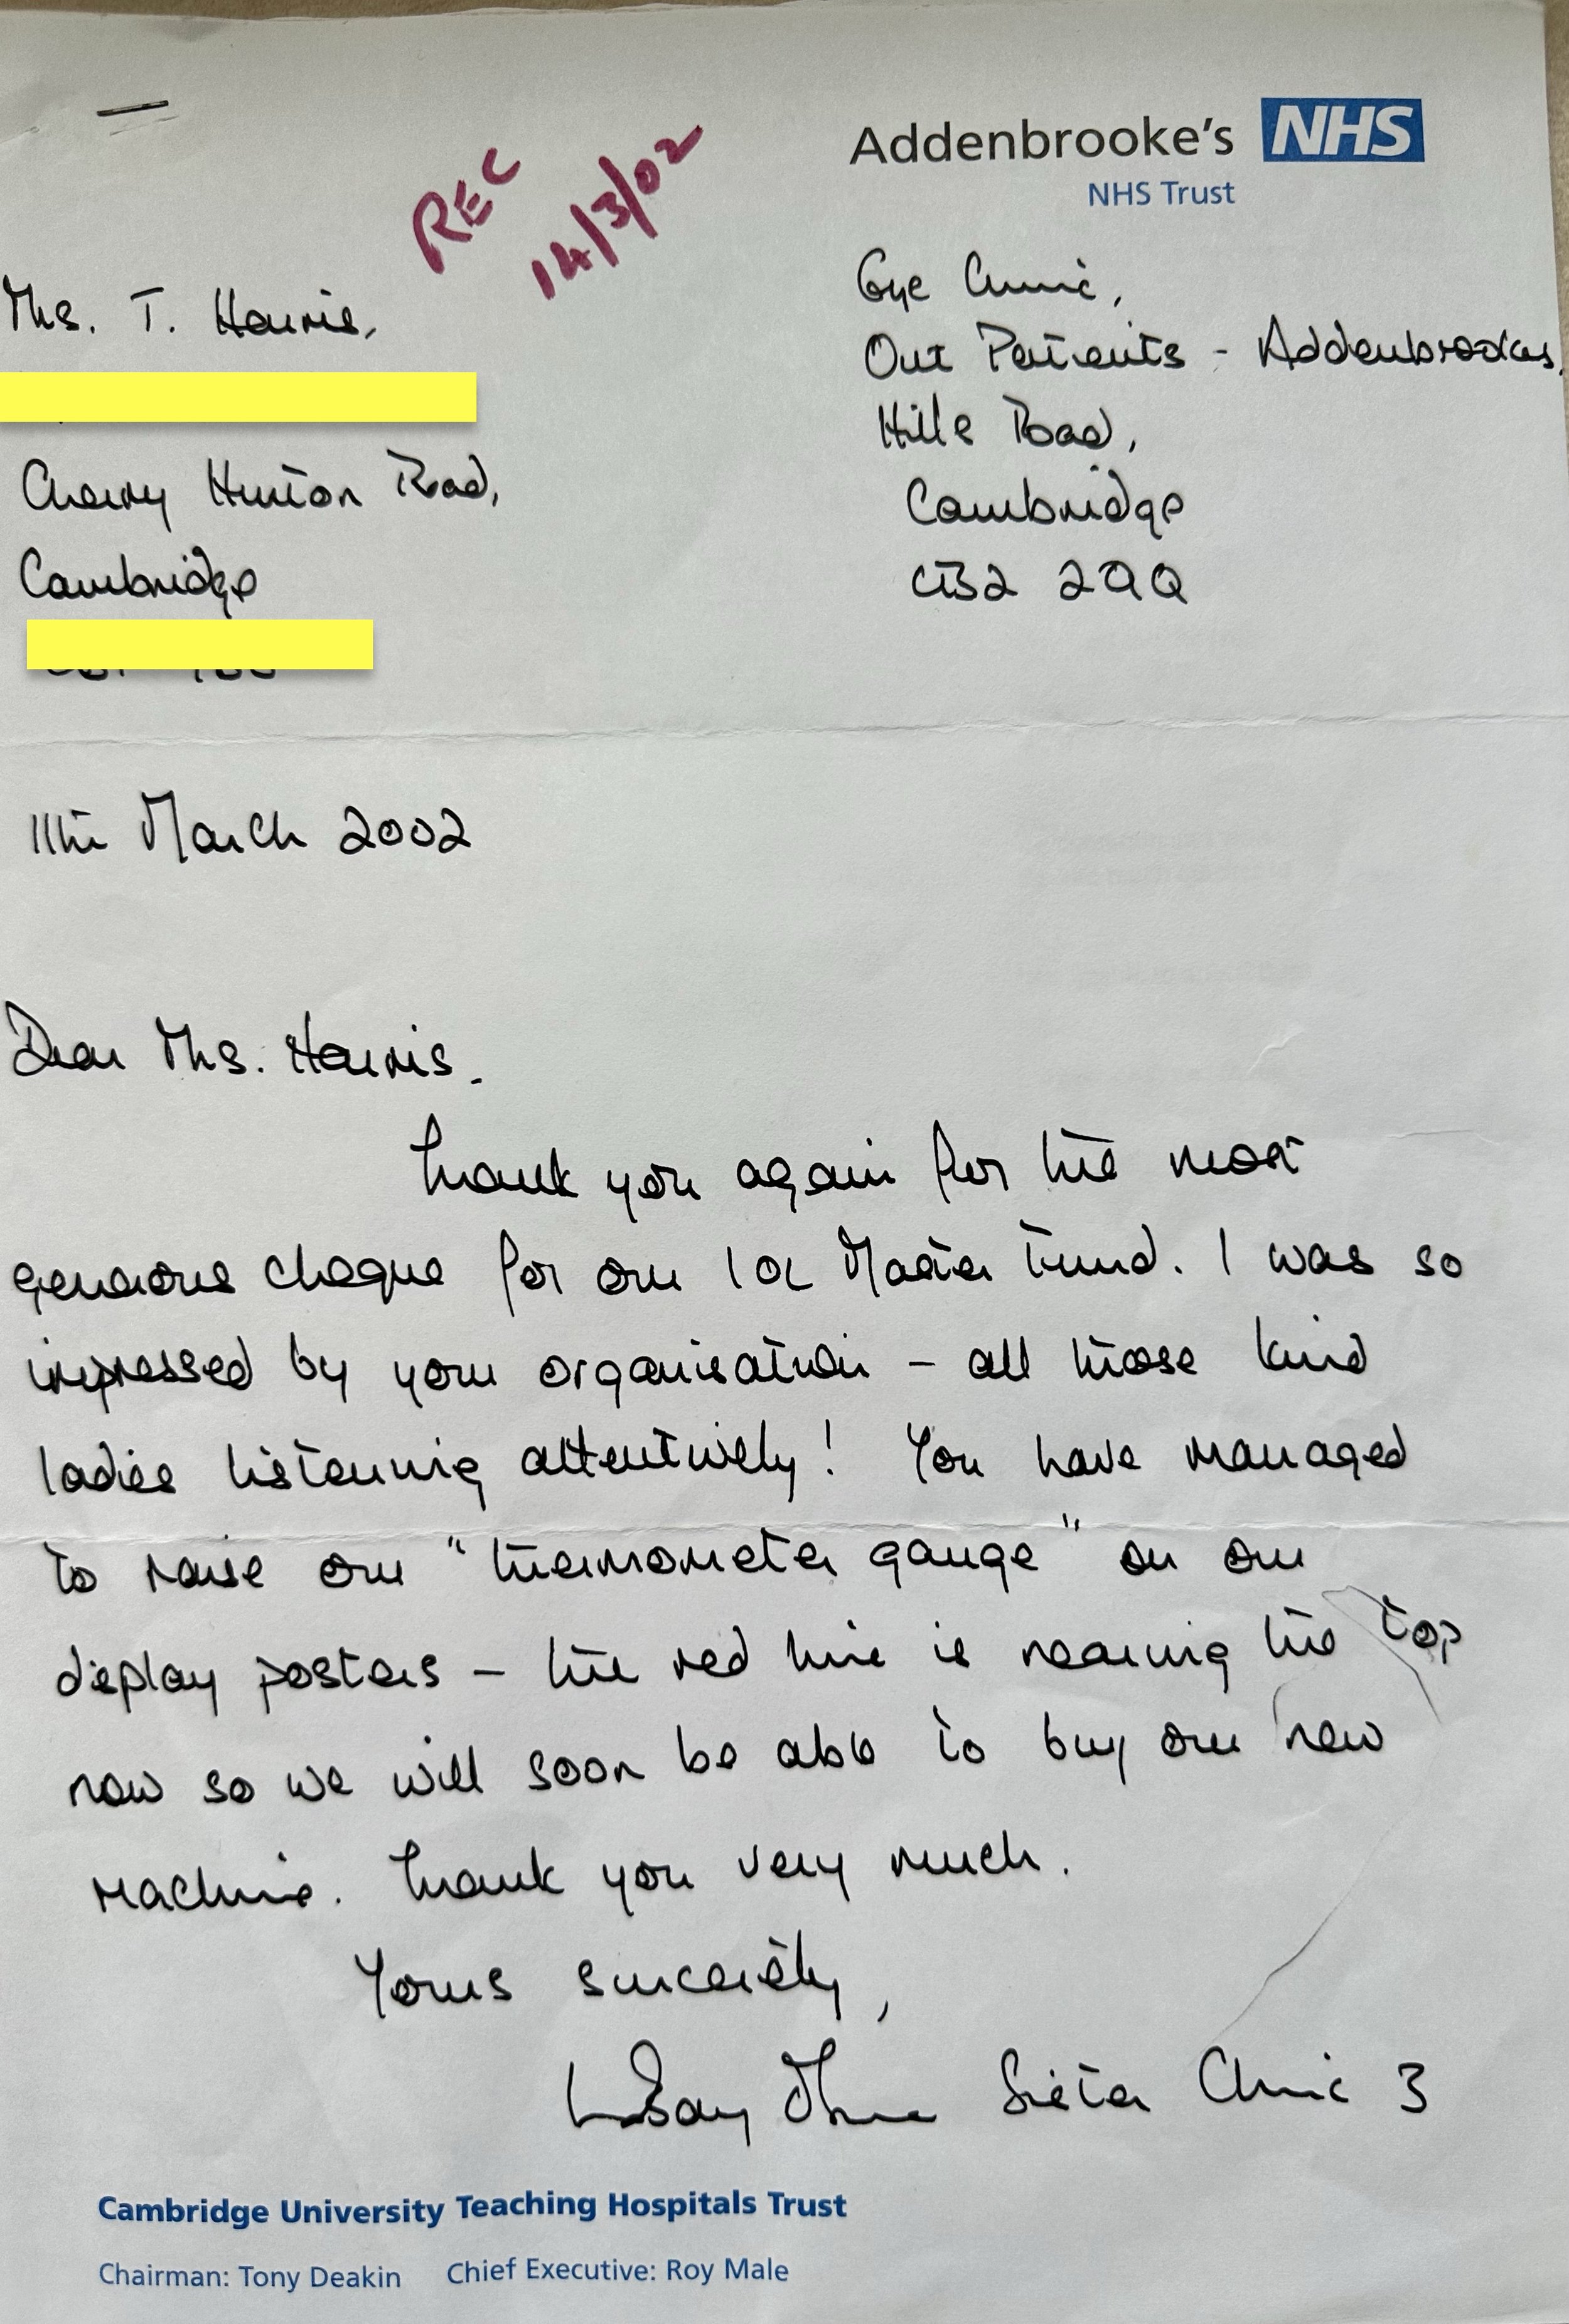 Addenbrooke's NHS
NHS Trust
REC
14/3/02
Eye Clinic,
Out Patients - Addenbrookes,
Hills Road,
Cambridge
CB2 2QQ
Mrs. T. Harris,
Cherry Hinton Road,
Cambridge
11th March 2002
Dear Mrs. Harris.
Thank you again for the most
generous cheque for our IOL Master Fund. I was so
impressed by your organisation - all those kind
ladies listening attentively! You have managed
to raise our "thermometer gauge" on our
display posters - the red line is nearing the top
now so we will soon be able to buy our new
machine. Thank you very much.
Yours sincerely,
Sister Clinic 3
Cambridge University Teaching Hospitals Trust
Chairman: Tony Deakin Chief Executive: Roy Male